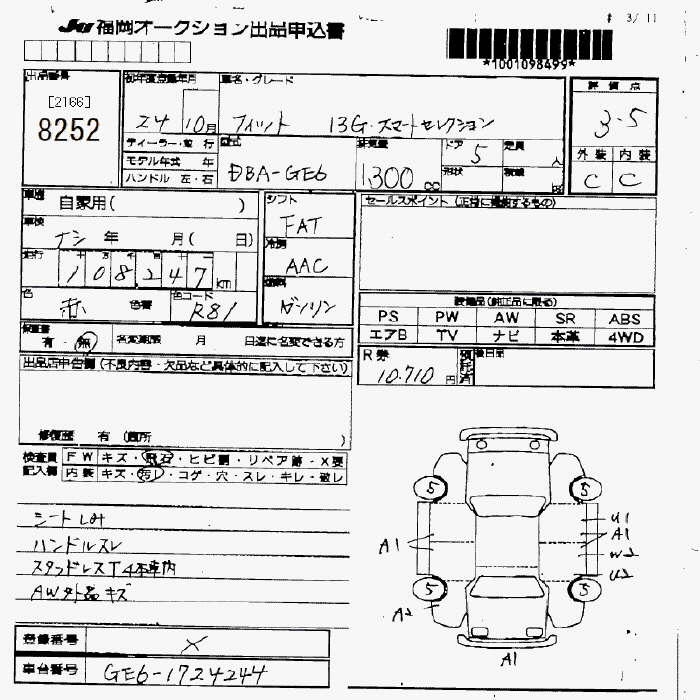 JU 福岡オークション出品申込書
# 3/11
*1001098499*
出品番号
[2166]
8252
初年度登録年月
24 10月
車名・グレード
フィット 13G・スマートセレクション
評価点
3-5
ディーラー・並行
モデル年式 年
ハンドル 左・右
型式
DBA-GE6
排気量
1300 cc
ドア
5
形状
定員
人
積載
外装 内装
C C
車歴
自家用( )
車検
ナシ 年 月( 日)
走行
108,247 km
色
赤 色替
色コード
R81
シフト
FAT
冷房
AAC
燃料
ガソリン
セールスポイント (正常に機能するもの)
装備品(純正品に限る)
PS PW AW SR ABS
エアB TV ナビ 本革 4WD
保証書
有・無
名変期限 月 日迄に名変できる方
R券
10,710 円
預託済
後日品
出品店申告欄 (不良内容・欠品など具体的に記入して下さい)
修復歴 有 (箇所 )
検査員記入欄
FW キズ・飛石・ヒビ割・リペア跡・X要
内装 キズ・汚レ・コゲ・穴・スレ・キレ・破レ
シートしみ
ハンドルスレ
スタッドレスT4本車内
AW外品キズ
5 5
A1
U1
A1
W2
U2
5 5
A2
A1
登録番号
×
車台番号
GE6-1724244